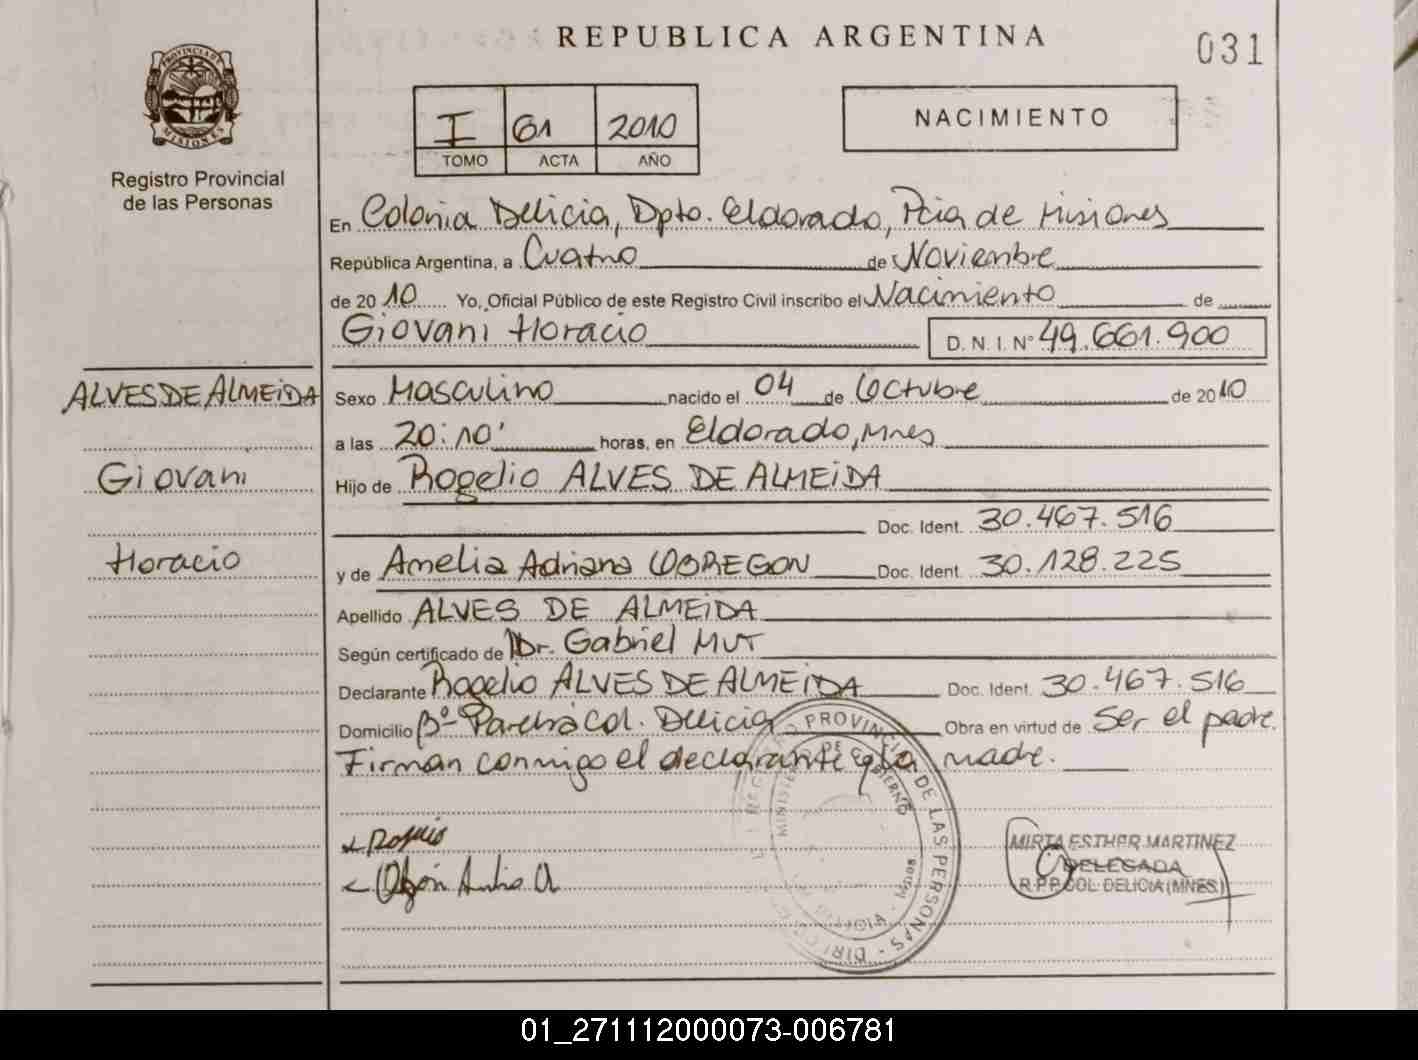 REPUBLICA ARGENTINA
031
PROVINCIA DE
MISIONES
Registro Provincial
de las Personas
I 61 2010
TOMO ACTA AÑO
NACIMIENTO
En Colonia Delicia, Dpto. Eldorado, Pcia de Misiones
República Argentina, a Cuatro de Noviembre
de 2010 Yo, Oficial Público de este Registro Civil inscribo el Nacimiento de
Giovani Horacio D. N. I. N° 49.661.900
ALVES DE ALMEIDA
Giovani
Horacio
Sexo Masculino nacido el 04 de Octubre de 2010
a las 20:10' horas, en Eldorado, Mnes
Hijo de Rogelio ALVES DE ALMEIDA
Doc. Ident. 30.467.516
y de Amelia Adriana OBREGON Doc. Ident. 30.128.225
Apellido ALVES DE ALMEIDA
Según certificado de Dr. Gabriel MUT
Declarante Rogelio ALVES DE ALMEIDA Doc. Ident. 30.467.516
Domicilio B°- Col. Delicia Obra en virtud de Ser el padre.
Firman conmigo el declarante y la madre.
PROVINCIAL DE LAS PERSONAS
MINISTERIO DE GOBIERNO
MIRTA ESTHER MARTINEZ
DELEGADA
R.P.P. COL. DELICIA (MNES.)
01_271112000073-006781